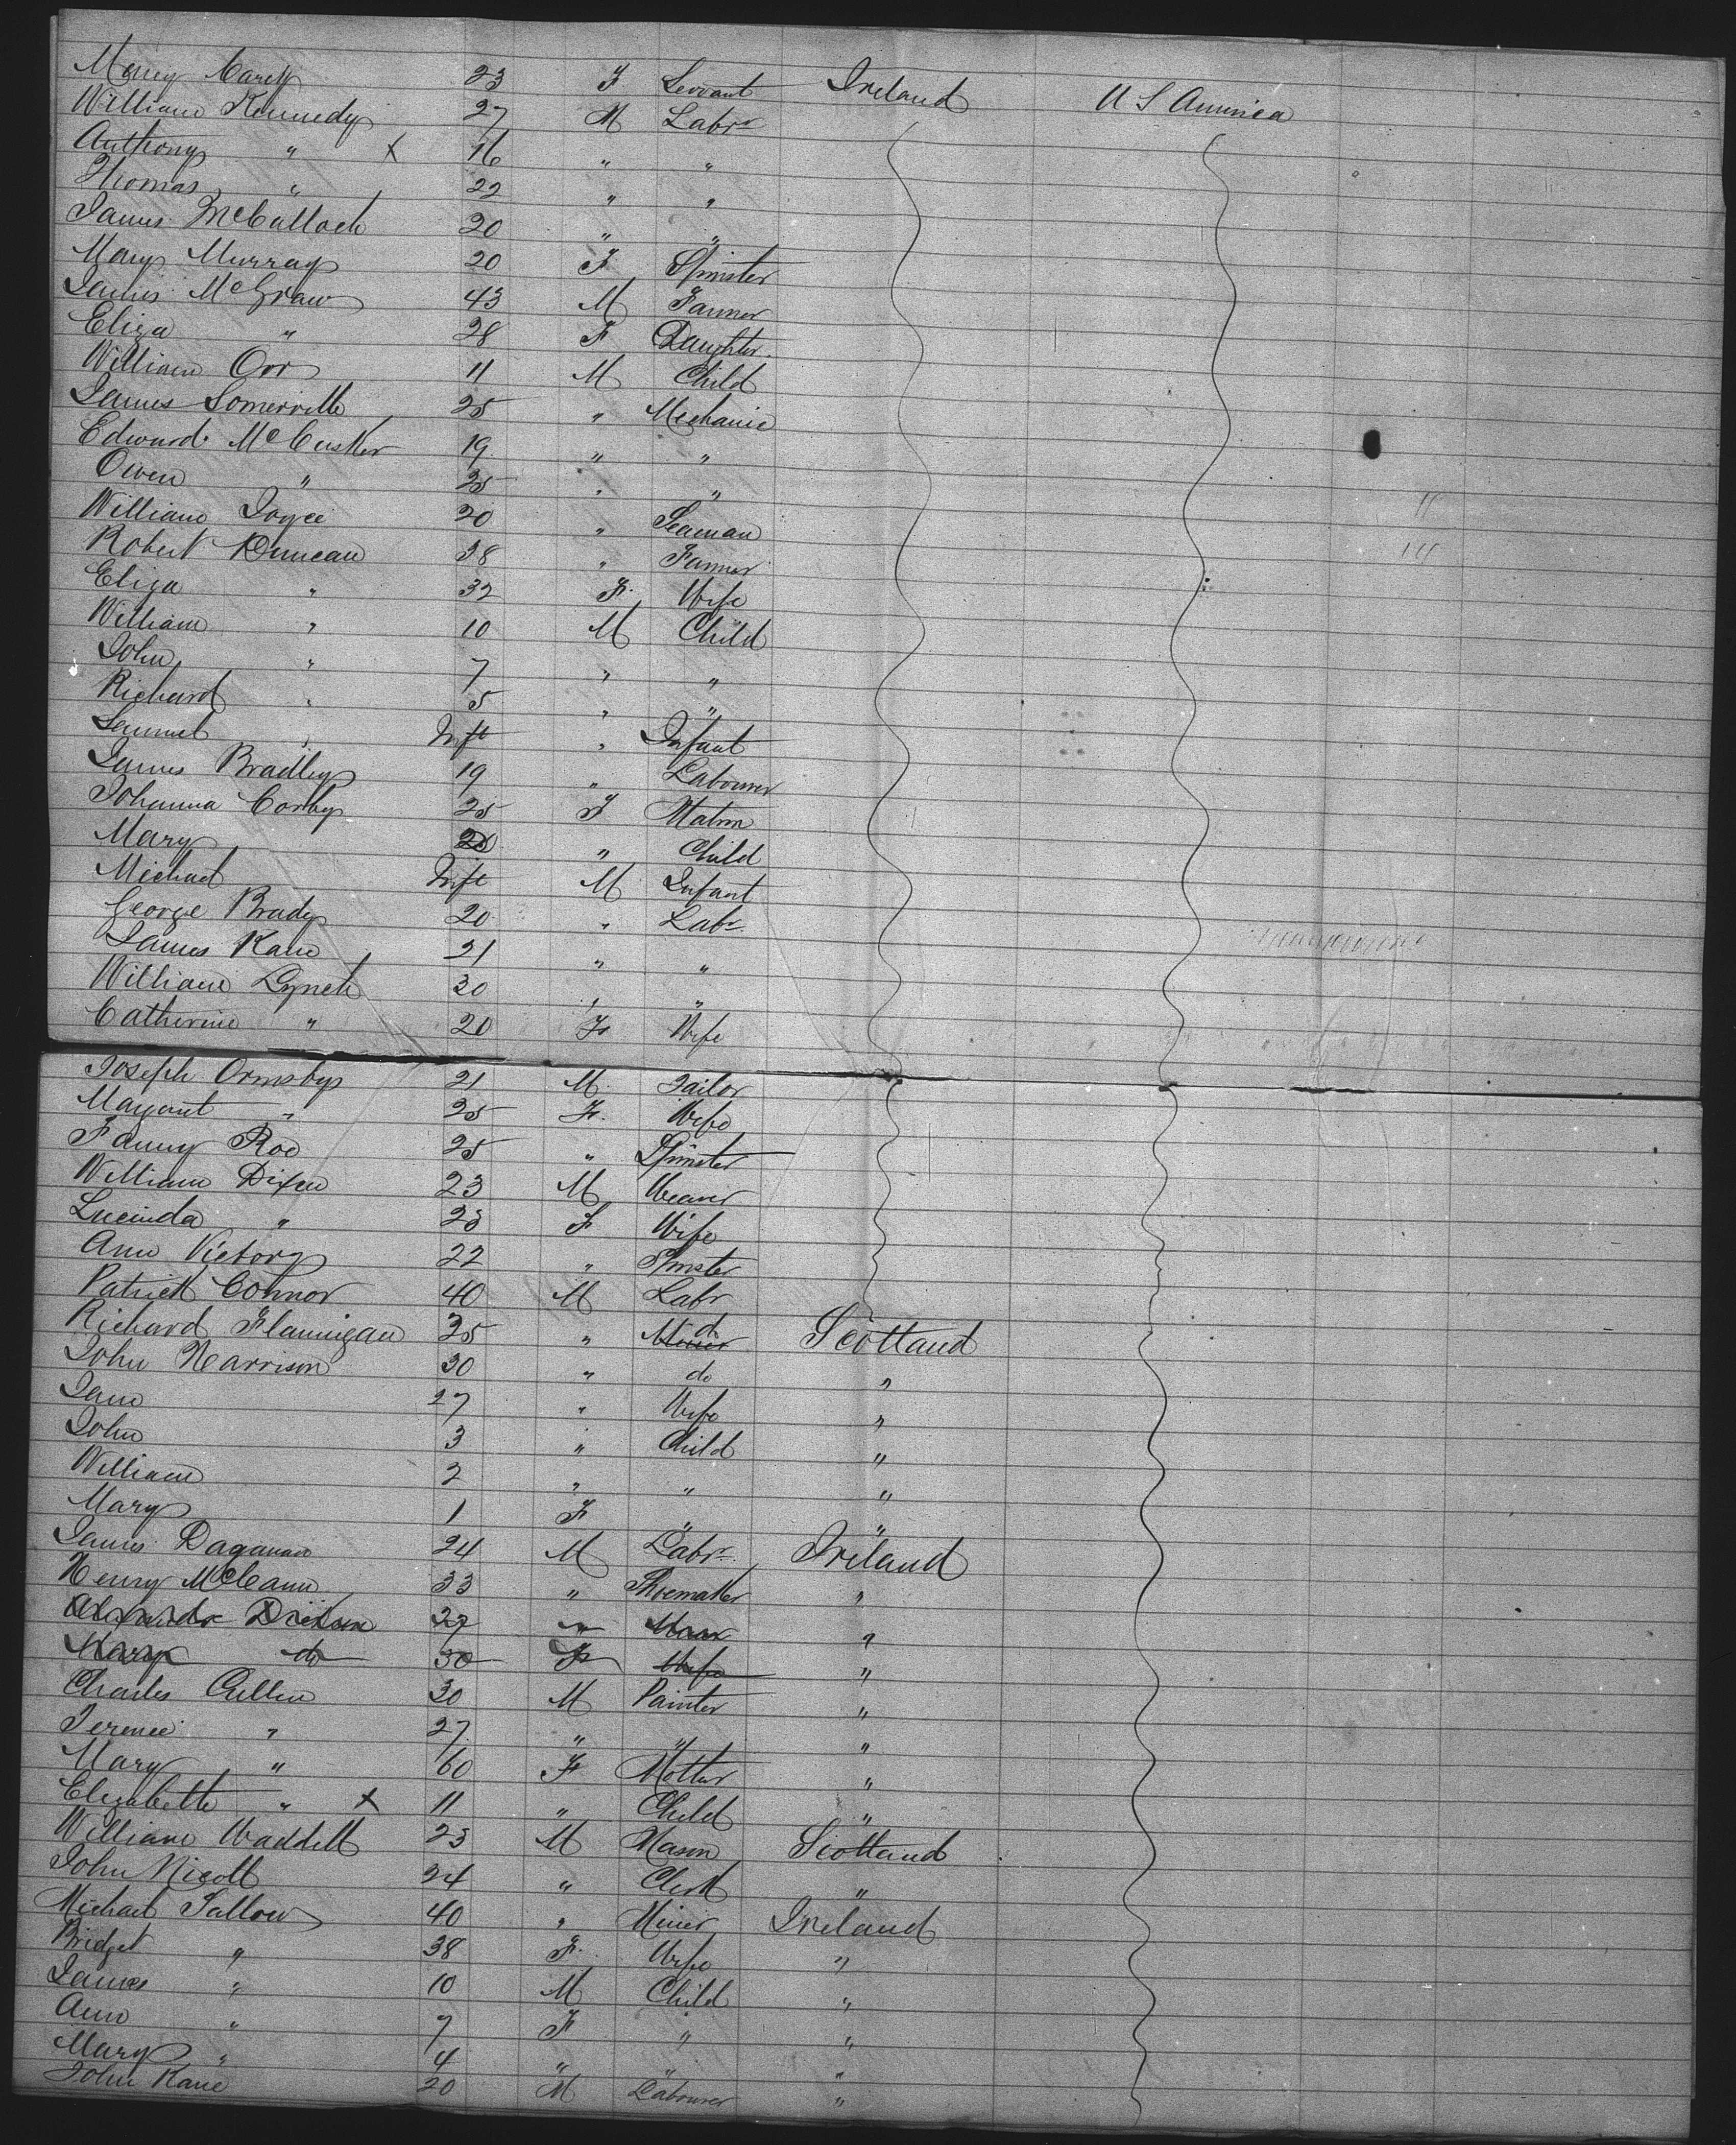 Mary Carey 23 F Servant Ireland U S America
William Kennedy 27 M Labr
Anthony " X 16 " "
Thomas " 22 " "
James McCulloch 20 " "
Mary Murray 20 F Spinster
James McGraw 43 M Farmer
Eliza " 28 F Daughter
William Orr 11 M Child
James Somerville 25 " Mechanic
Edward McCusker 19 " "
Owen " 25 " "
William Joyce 20 " Seaman
Robert Duncan 38 " Farmer
Eliza " 32 F. Wife
William " 10 M Child
John " 7 " "
Richard " 5 " "
Samuel " Inft " Infant
James Bradley 19 " Labourer
Johanna Corby 25 F Matron
Mary " Child
Michael Inft M Infant
George Brady 20 " Labr
James Kane 21 " "
William Lynch 30 " "
Catherine " 20 F Wife
Joseph Ormsby 21 M. Tailor
Margaret " 25 F. Wife
Fanny Roe 25 " Spinster
William Dixon 23 M Weaver
Lucinda " 23 F Wife
Ann Victory 22 " Spinster
Patrick Connor 40 M Labr
Richard Flannigan 25 " Miner do Scotland
John Harrison 30 " do "
Jane 27 " Wife "
John 3 " Child "
William 2 " " "
Mary 1 F " "
James 24 M Labr Ireland
Henry McCann 33 " Shoemaker "
Dickson 27 " "
Mary do 30 F Wife "
Charles Cullen 30 M Painter "
Terence " 27 " " "
Mary " 60 F Mother "
Elizabeth " X 11 " Child "
William Waddell 23 M Mason Scotland
John Nicoll 24 " Clerk "
Michael Fallow 40 " Miner Ireland
Bridget " 38 F. Wife "
James " 10 M Child "
Ann " 7 F " "
Mary " 4 " " "
John Kane 20 M Labourer "